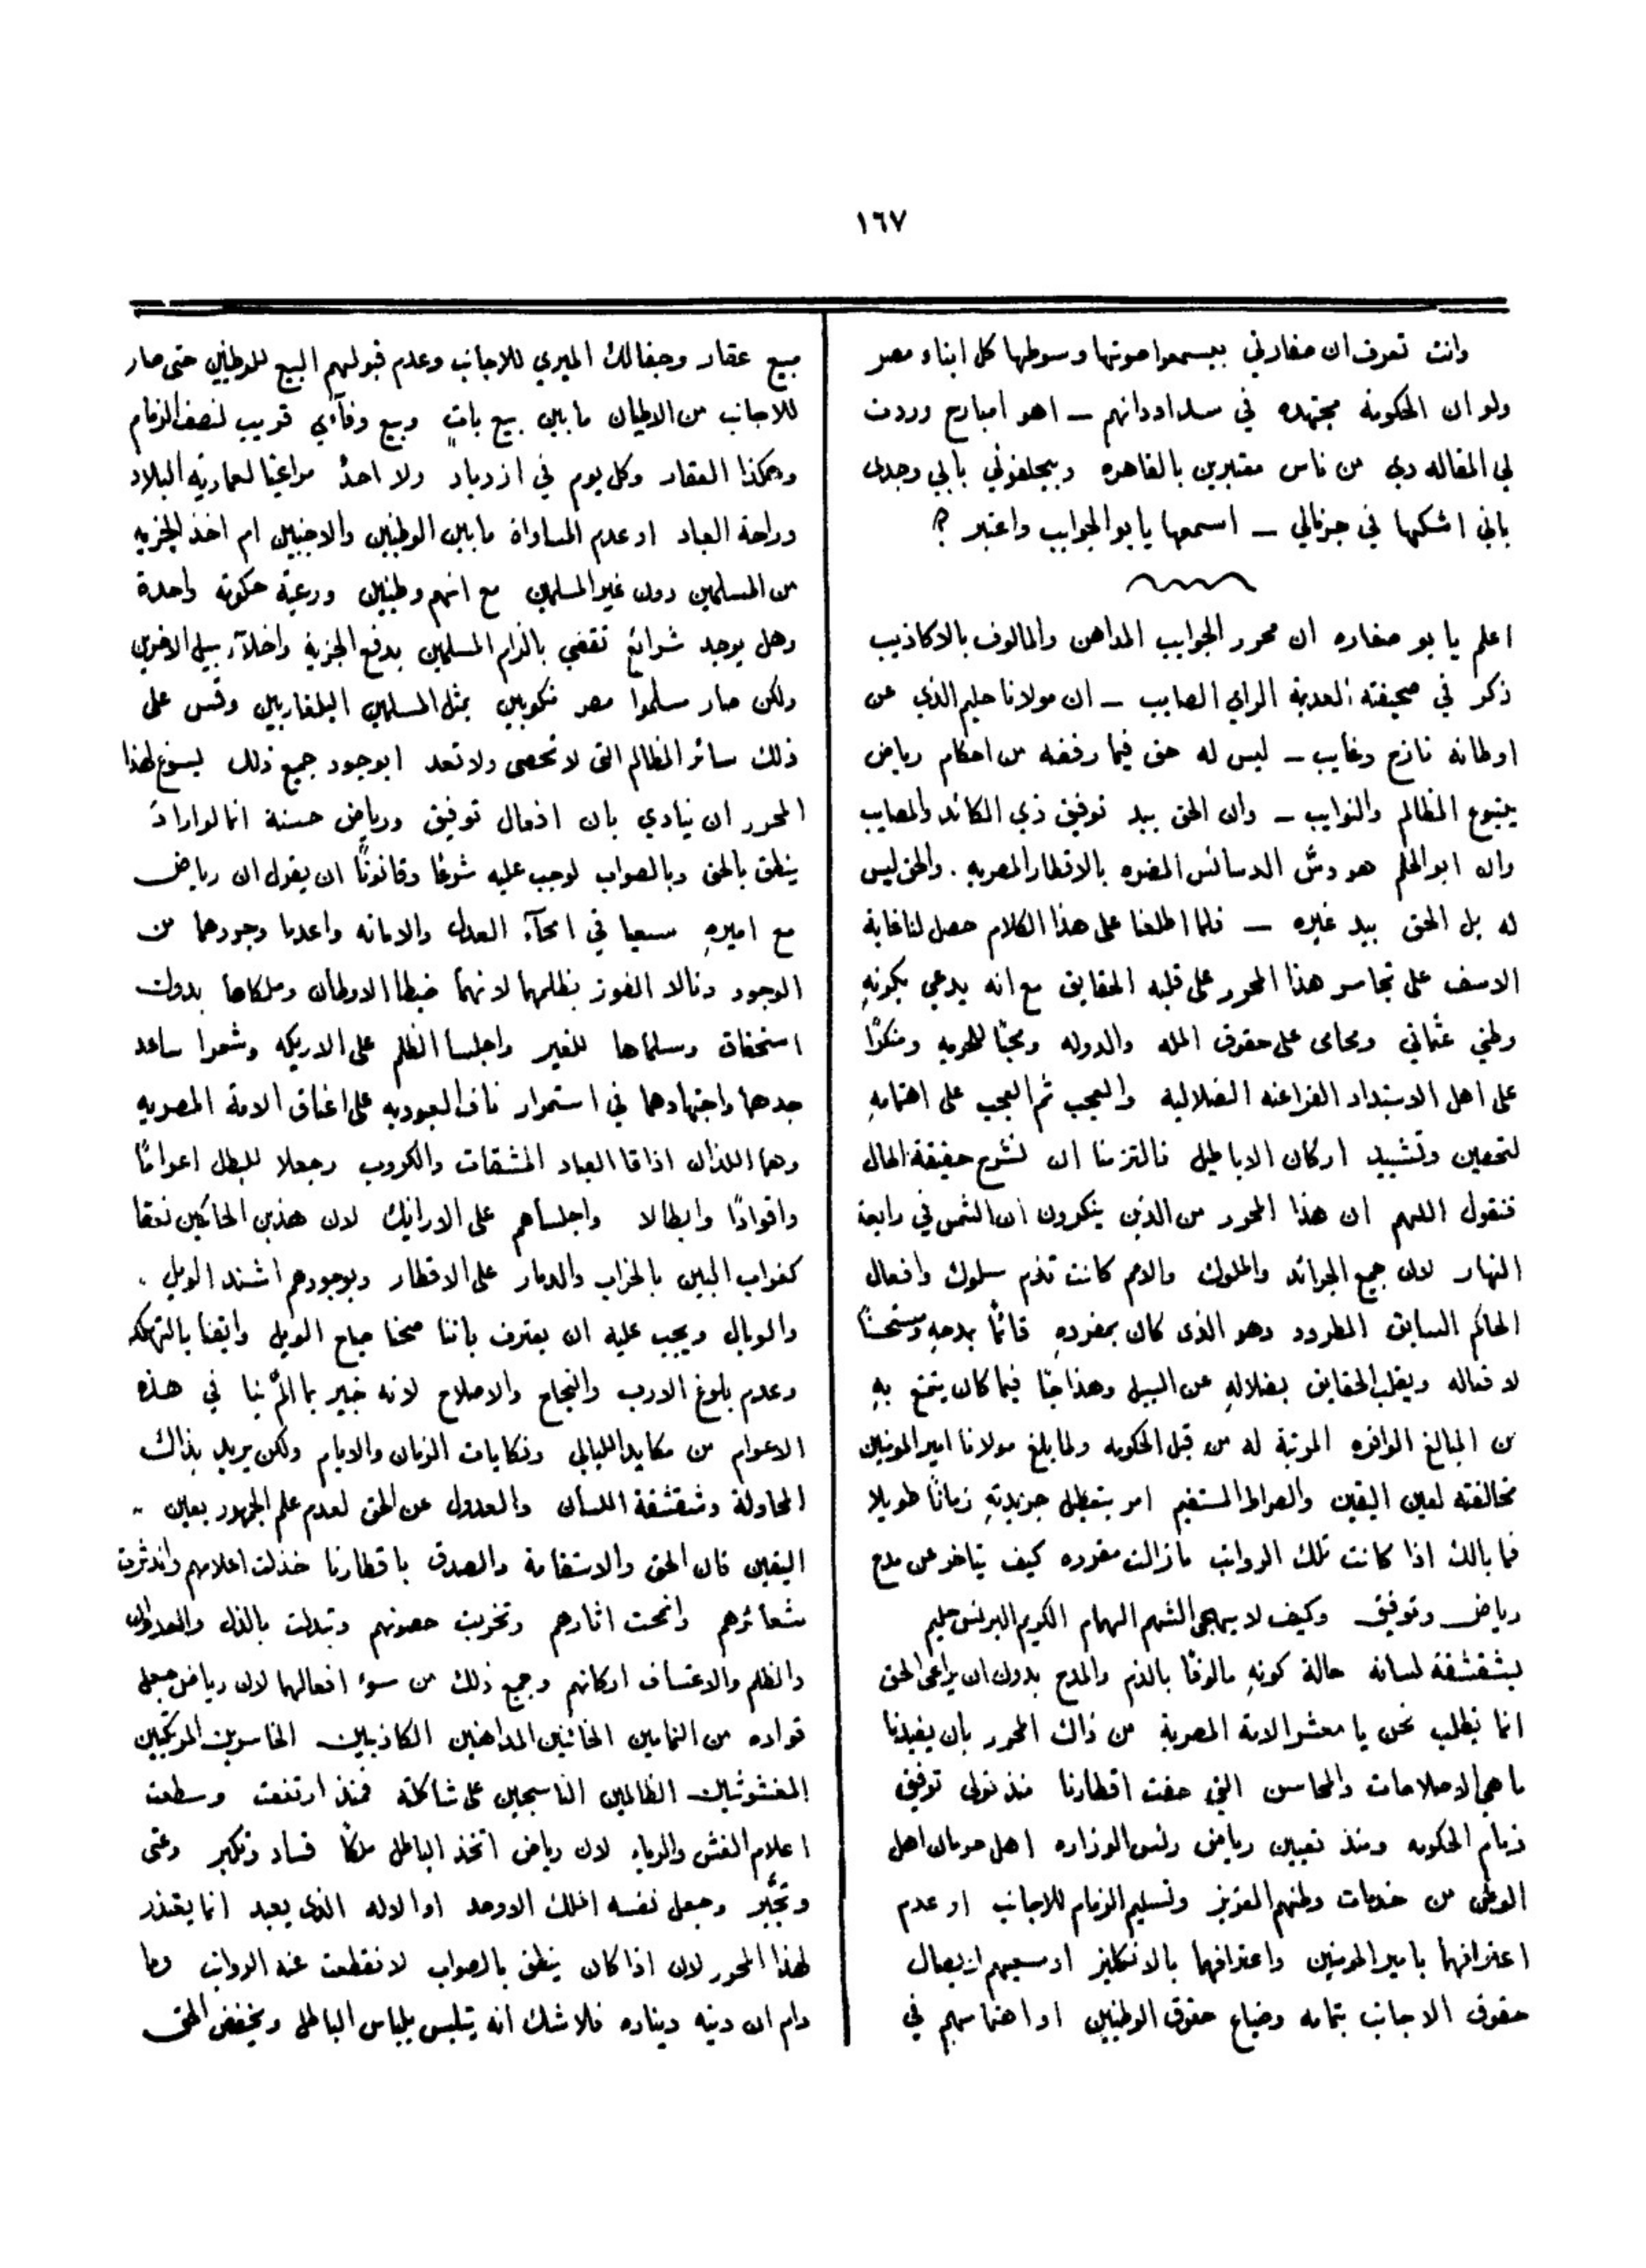 ١٦٧
وانت تعرف ان صفارتي بيسمعوا صوتها وسوطها كل ابناء مصر
ولو ان الحكومة مجتهده في سداد دانهم – اهو امبارح وردت
لي المقاله دي من ناس معتبرين بالقاهره وبيحلفوني بابي وجدى
باني اشكها في جرنالي – اسمعها يا بو الجوايب واعتبر ؟
اعلم يا بو صفاره ان محرر الجوايب المداهن والمالوف بالاكاذيب
ذكر في صحيفته العديمة الراي الصايب – ان مولانا حليم الذي عن
اوطانه نازح وغايب – ليس له حق فيما رفضه من احكام رياض
ينبوع المظالم والنوايب – وان الحق بيد توفيق ذي المكائد والمصايب
وان ابو الحلم هو دسّ الدسائس المضره بالاقطار المصريه . والحق ليس
له بل الحق بيد غيره – فلما اطلعنا على هذا الكلام حصل لنا غاية
الاسف على تجاسر هذا المحرر على قلبه الحقايق مع انه يدعي بكونهِ
وطني عثماني ومحامى على حقوق المله والدوله ومحبًا للحريه ومنكرًا
على اهل الاستبداد الفراعنه الضلاليه والعجب ثم العجب على اهتمامهِ
لتحصين وتشييد اركان الاباطيل فالتزمنا ان نشرح حقيقة الحال
فنقول اللهم ان هذا المحرر من الذين ينكرون ان الشمس في رابعة
النهار لان جميع الجرائد والملوك والامم كانت تذم سلوك وافعال
الحاكم السابق المطرود وهو الذى كان بمفردهِ قائمًا بمدحهِ ومستحسنًا
لافعاله ويقلب الحقايق بضلالهِ عن السبيل وهذا حبًا فيما كان يتمتع بهِ
من المبالغ الوافره المرتبة له من قبل الحكومه ولما بلغ مولانا امير المومنين
مخالفته لعين اليقين والصراط المستقيم امر بتعطيل جريدتهِ زمانًا طويلا
فما بالك اذا كانت تلك الرواتب مازالت مقرره كيف يتاخر عن مدح
رياض وتوفيق وكيف لا يهجي الشهم الهمام الكريم البرنس حليم
بشقشقة لسانه حالة كونهِ مالوفًا بالذم والمدح بدون ان يراعي الحق
انما نطلب نحن يا معشر الامة المصرية من ذاك المحرر بان يفيدنا
ما هى الاصلاحات والمحاسن التي حفت اقطارنا منذ تولى توفيق
زمام الحكومه ومنذ تعيين رياض رئس الوزاره اهل حرمان اهل
الوطن من خدمات وطنهم العزيز وتسليم الزمام للاجانب او عدم
اعترافهما بامير المومنين واعترافهما بالانكليز او سعيهم لايصال
حقوق الاجانب بتمامه وضياع حقوق الوطنيين او اهتمامهم في
مبيع عقار وجفالك الميري للاجانب وعدم قبولهم البيع للوطنيين حتى صار
للاجانب من الاطيان ما بين بيع باتٍ وبيع وفآءي قريب لنصف الزمام
وهكذا العقار وكل يوم في ازدياد ولا احدٌ مراعيًا لعمارية البلاد
وراحة العباد او عدم المساواة ما بين الوطنيين والاجنبيين ام اخذ الجزيه
من المسلمين دون غير المسلمين مع انهم وطنيين ورعية حكومة واحدة
وهل يوجد شرائع تقضي بالزام المسلمين بدفع الجزية واخلآء سبيل الاخرين
ولكن صار مسلموا مصر منكوبين بمثل المسلمين البلغاريين وقس على
ذلك سائر المظالم التى لا تحصى ولا تعد ابوجود جميع ذلك يسوغ لهذا
المحرر ان ينادي بان افعال توفيق ورياض حسنة انما لو اراد
ينطق بالحق وبالصواب لوجب عليه شرعًا وقانونًا ان يقول ان رياض
مع اميرهِ سعيا في امحآء العدل والامانه واعدما وجودهما من
الوجود ونالا الفوز بظلمهما لانهما ضبطا الاوطان وملكاها بدون
استحقاق وسلماها للغير واجلسا الظلم على الاريكه وشمرا ساعد
جدهما واجتهادهما في استمرار ناف العبوديه على اعناق الامة المصريه
وهما اللذان اذاقا العباد المشقات والكروب وجعلا للبطل اعوانًا
واقوادًا وابطالا واجلساهم على الارائك لان هذين الحاكمين نعقا
كغراب البين بالخراب والدمار على الاقطار وبوجودهم اشتد الويل
والوبال ويجب عليه ان يعترف باننا صحنا صياح الويل وايقنا بالتهلكه
وعدم بلوغ الارب والنجاح والاصلاح لانه خبير بما المّ بنا في هذه
الاعوام من مكايد الليالي ونكايات الزمان والايام ولكن يريد بذاك
المحاولة وشقشقة اللسان والعدول عن الحق لعدم علم الجمهور بعين
اليقين فان الحق والاستقامة والصدق باقطارنا خذلت اعلامهم واندثرت
شعائرهم وانمحت اثارهم وتخربت حصونهم وتبدلت بالذل والعدوان
والظلم والاعتساف اركانهم وجميع ذلك من سوء افعالهما لان رياض جعل
قواده من النمامين الخائنين المداهنين الكاذبين الخاسرين المرتكبين
المغشوشين الظالمين الناسجين على شاكلته فمنذ ارتفعت وسطعت
اعلام الغش والرياء لان رياض اتخذ الباطل ملكًا فساد وتكبر وعتى
وتجبّر وجعل نفسه الملك الاوحد او الاله الذى يعبد انما يعتذر
لهذا المحرر لان اذا كان ينطق بالصواب لانقطعت عنه الرواتب وما
دام ان دينه ديناره فلا شك انه يتلبس بلباس الباطل ويخفض الحق